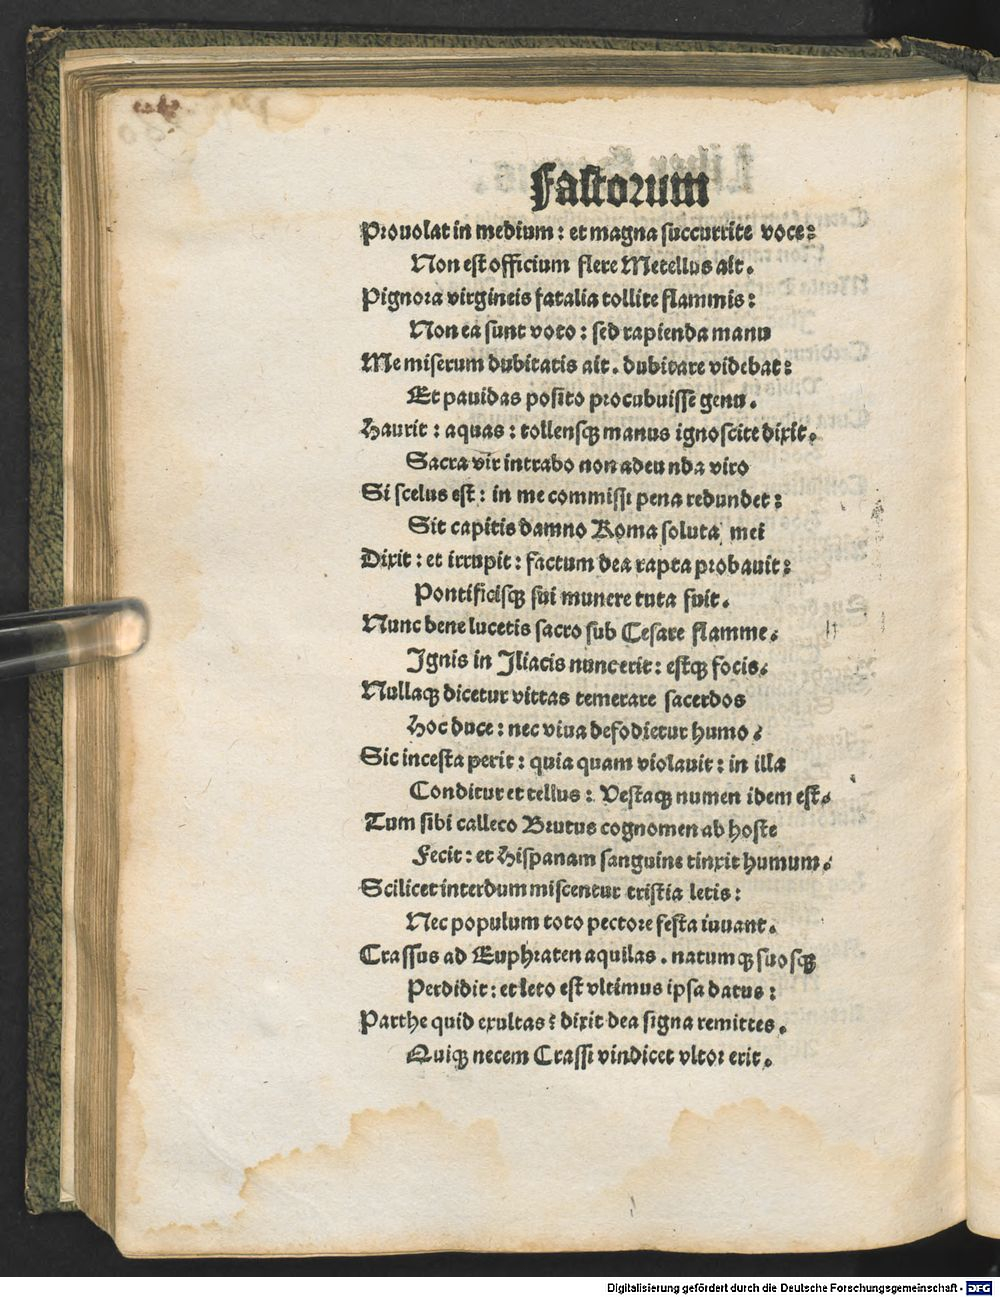 Fastorum
Prouolat in medium : et magna succurrite voce:
Non est officium flere Metellus ait.
Pignora virgineis fatalia tollite flammis:
Non ea sunt voto : sed rapienda manu
Me miserum dubitatis ait. dubitare videbat:
Et pauidas posito procubuisse genu.
Haurit : aquas : tollensqꝫ manus ignoscite dixit.
Sacra vir intrabo non adeunda viro
Si scelus est : in me commissi pena redundet:
Sit capitis damno Roma soluta mei
Dixit : et irrupit : factum dea rapta probauit:
Pontificisqꝫ sui munere tuta fuit.
Nunc bene lucetis sacro sub Cesare flamme.
Ignis in Iliacis nunc erit : estqꝫ focis.
Nullaqꝫ dicetur vittas temerare sacerdos
Hoc duce : nec viua defodietur humo.
Sic incesta perit : quia quam violauit : in illa
Conditur et tellus : Vestaqꝫ numen idem est.
Tum sibi calleco Brutus cognomen ab hoste
Fecit : et Hispanam sanguine tinxit humum.
Scilicet interdum miscentur tristia letis:
Nec populum toto pectore festa iuuant.
Crassus ad Euphraten aquilas. natumqꝫ suosqꝫ
Perdidit : et leto est vltimus ipsa datus:
Parthe quid exultas? dixit dea signa remittes.
Quiqꝫ necem Crassi vindicet vltor erit.
Digitalisierung gefördert durch die Deutsche Forschungsgemeinschaft - DFG